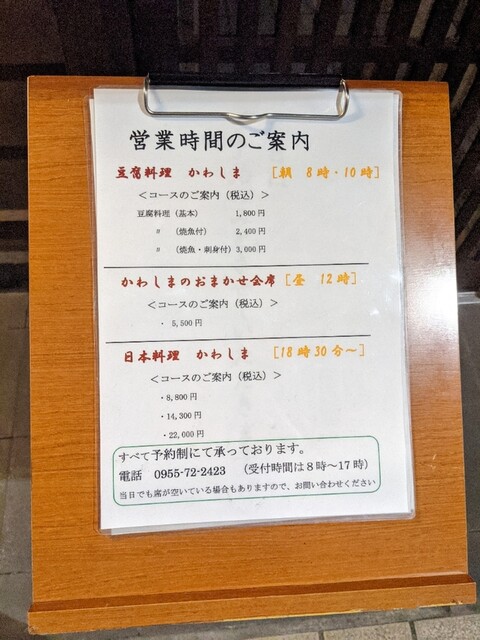 営業時間のご案内
豆腐料理 かわしま ［朝 8時・10時］
＜コースのご案内（税込）＞
豆腐料理（基本） 1,800円
〃 （焼魚付） 2,400円
〃 （焼魚・刺身付） 3,000円
かわしまのおまかせ会席［昼 12時］
＜コースのご案内（税込）＞
・ 5,500円
日本料理 かわしま ［18時30分～］
＜コースのご案内（税込）＞
・8,800円
・14,300円
・22,000円
すべて予約制にて承っております。
電話 0955-72-2423 （受付時間は８時～17時）
当日でも席が空いている場合もありますので、お問い合わせください